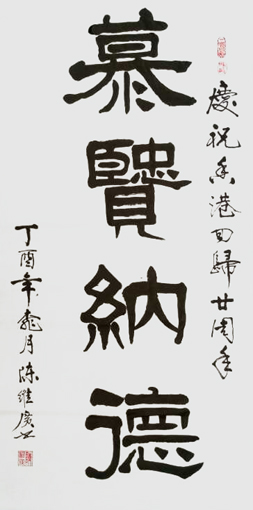 慶祝香港回歸廿周年
慕贒納德
丁酉年月陈維慶